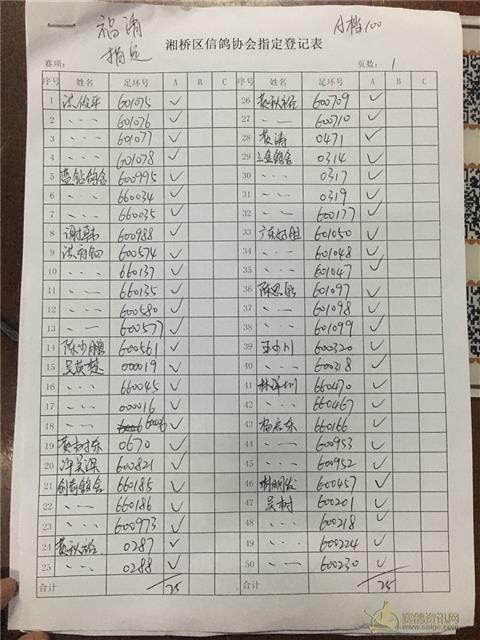 福清
指定
A档100
湘桥区信鸽协会指定登记表
赛项： 页数：1
序号 姓名 足环号 A B C 序号 姓名 足环号 A B C
1 洪俊平 601075 ✓ 26 600709 ✓
2 〃 601076 ✓ 27 〃 600710 ✓
3 〃 601077 ✓ 28 黄涛 0471 ✓
4 〃 601078 ✓ 29 三鑫鸽舍 0314 ✓
5 蓝钻鸽舍 600995 ✓ 30 〃 0317 ✓
6 〃 660034 ✓ 31 〃 0319 ✓
7 〃 660035 ✓ 32 〃 600177 ✓
8 600988 ✓ 33 601050 ✓
9 600574 ✓ 34 〃 601048 ✓
10 〃 660137 ✓ 35 〃 601047 ✓
11 〃 660135 ✓ 36 601097 ✓
12 〃 600580 ✓ 37 〃 601098 ✓
13 〃 600577 ✓ 38 〃 601099 ✓
14 陈少鹏 600561 ✓ 39 600320 ✓
15 吴英楚 000019 ✓ 40 〃 600318 ✓
16 〃 660045 ✓ 41 660470 ✓
17 〃 000016 ✓ 42 〃 660467 ✓
18 〃 ✓ 43 660166 ✓
19 0670 ✓ 44 〃 600953 ✓
20 600821 ✓ 45 〃 600952 ✓
21 660185 ✓ 46 600457 ✓
22 〃 660186 ✓ 47 吴树 600201 ✓
23 〃 600973 ✓ 48 〃 600218 ✓
24 0287 ✓ 49 〃 600224 ✓
25 〃 0288 ✓ 50 〃 600230 ✓
合计 /25 合计 /25
赛鸽资讯网
www.saige.com